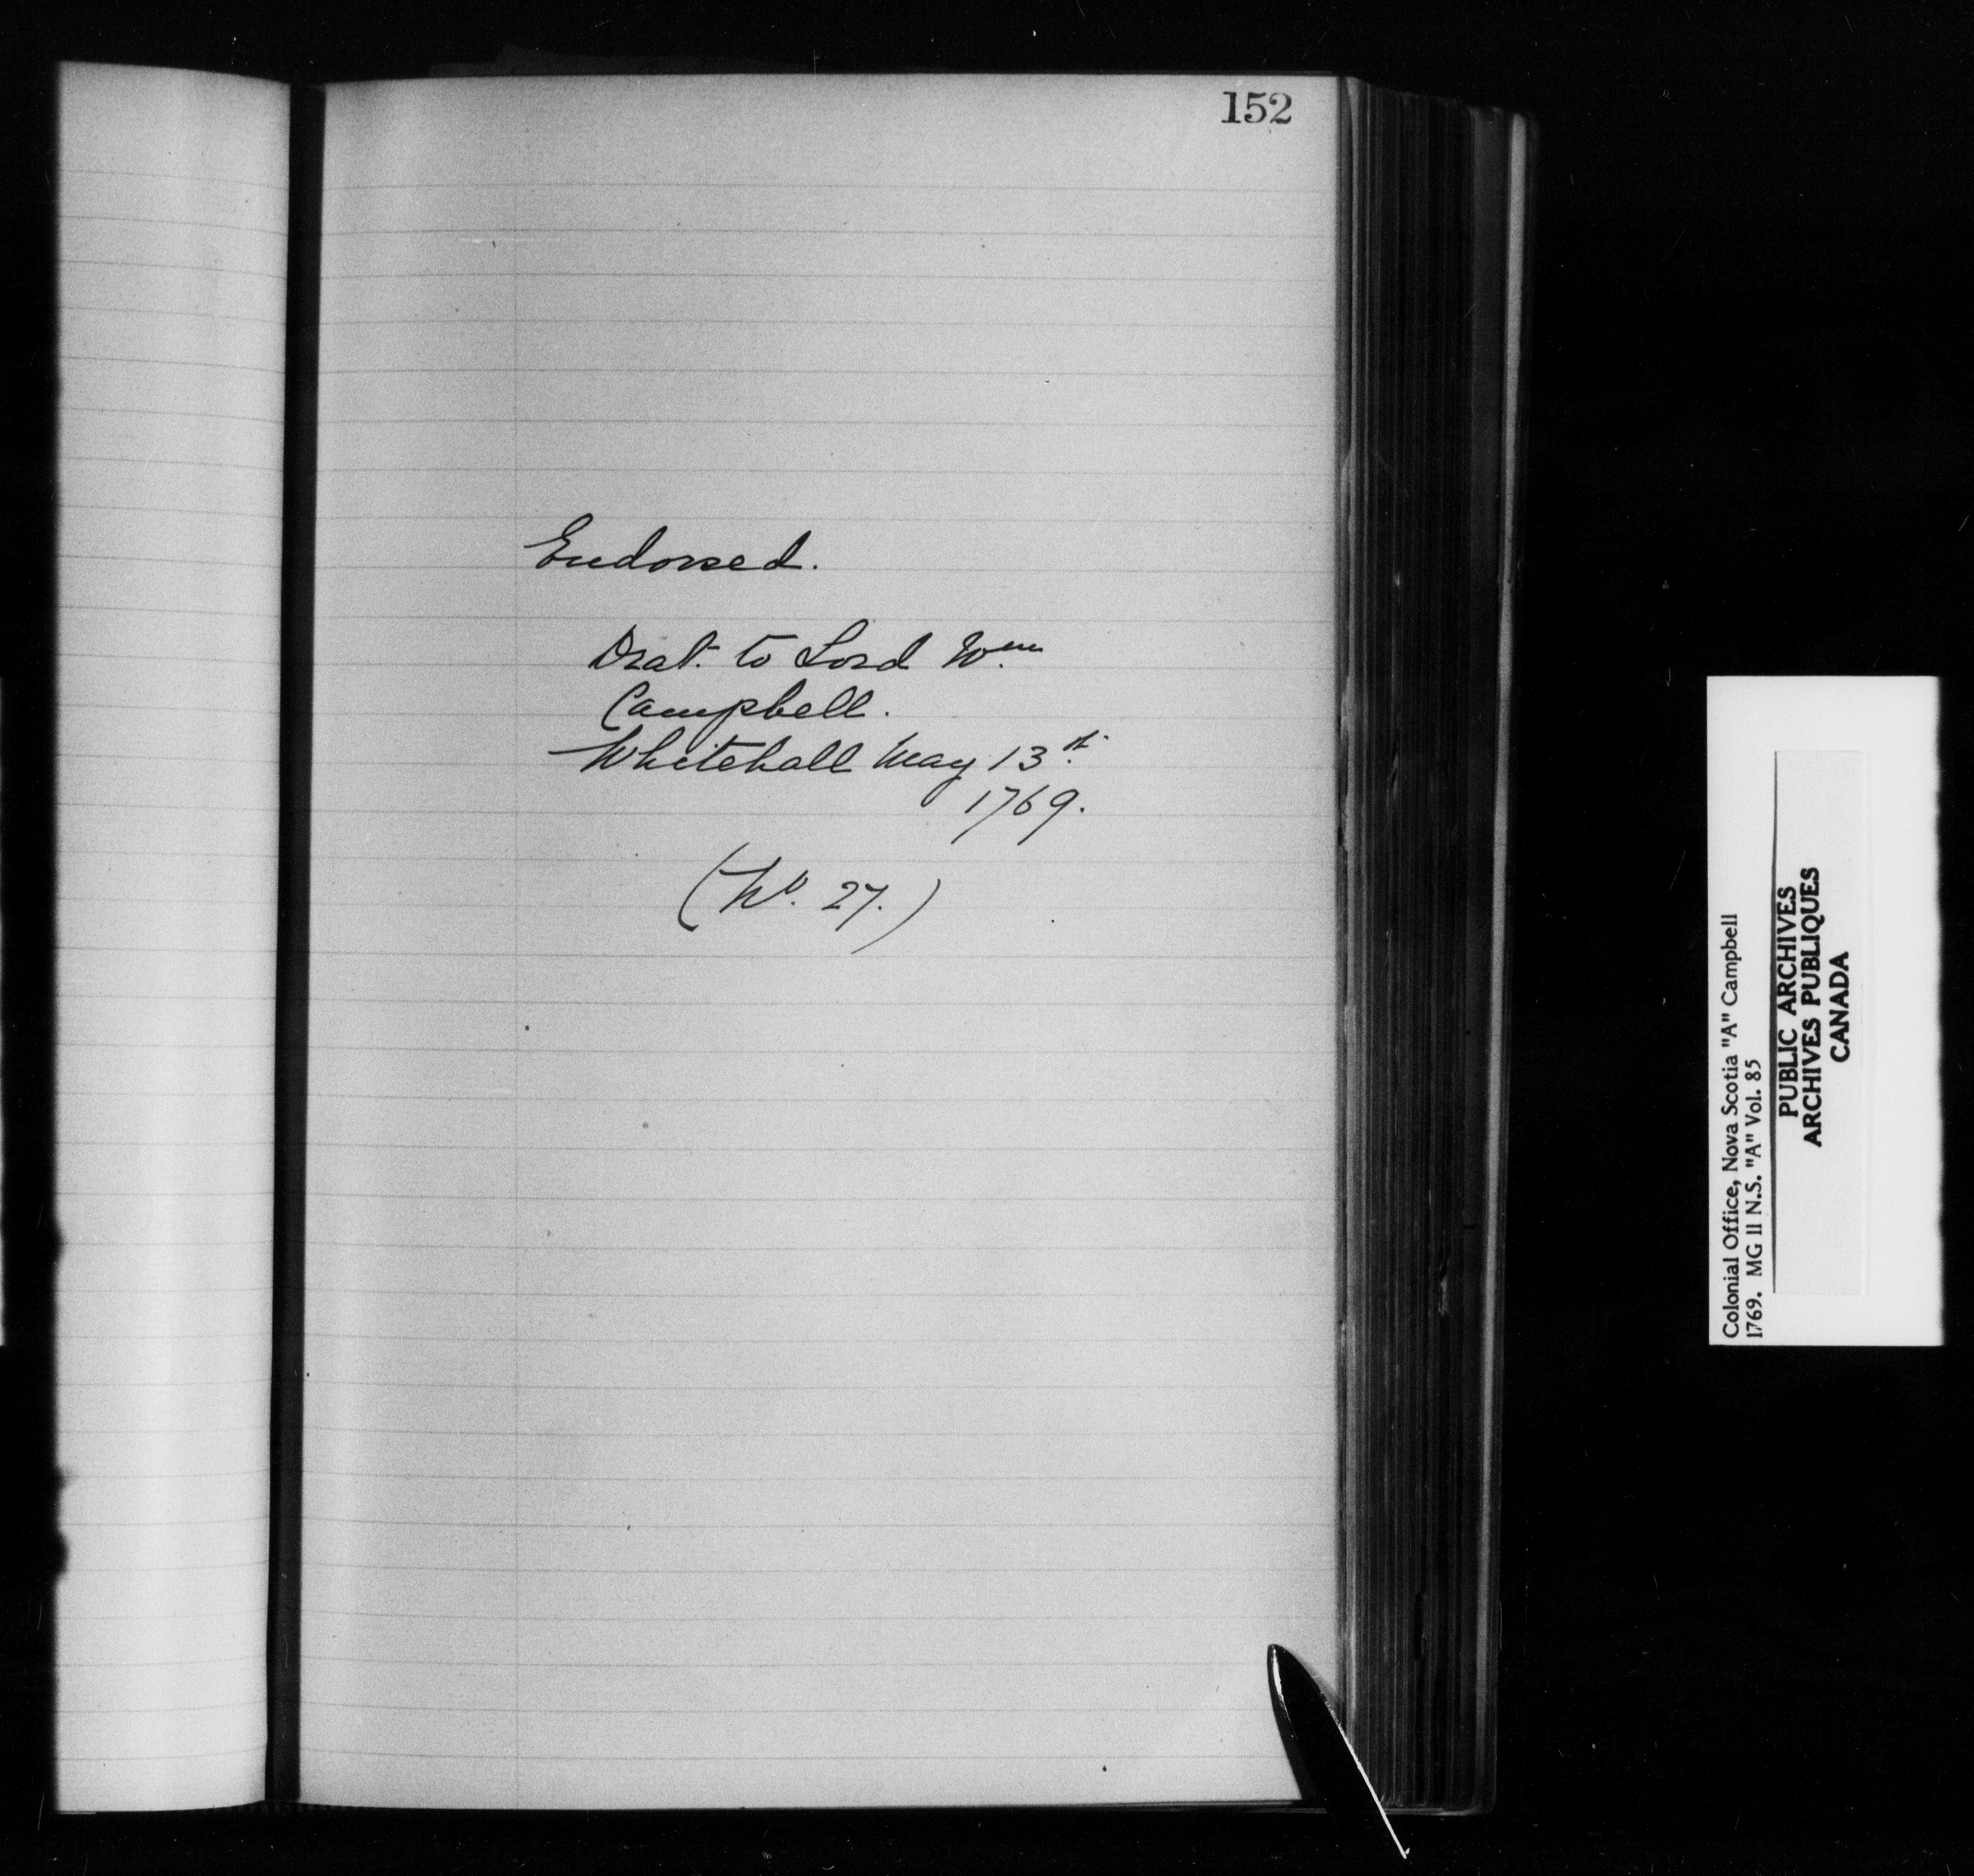 152
Endorsed.
Drat. to Lord Wm.
Campbell.
Whitehall May 13th.
1769.
(No. 27.)
Colonial Office, Nova Scotia "A" Campbell
1769. MG 11 N.S. "A" Vol. 85
PUBLIC ARCHIVES
ARCHIVES PUBLIQUES
CANADA